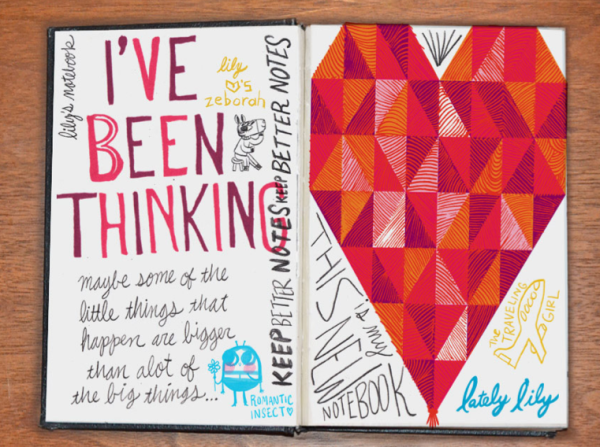 lily's notebook
I'VE
BEEN
THINKING
lily
♡'s
zeborah
KEEP BETTER NOTES KEEP BETTER NOTES
maybe some of the
little things that
happen are bigger
than alot of
the big things...
ROMANTIC
INSECT ♡
THIS
NOTEBOOK
THE
TRAVELING
GIRL
lately lily